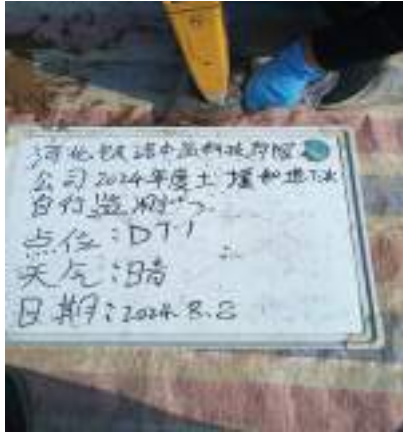 河北
科技有限
公司2024年度土壤和地下水
自行监测
点位:DT1
天气:晴
日期:2024.8.2